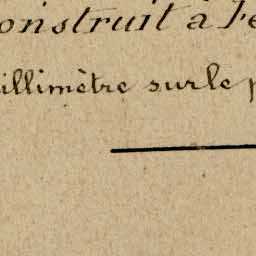 onstruit à l'e
illimètre sur le p